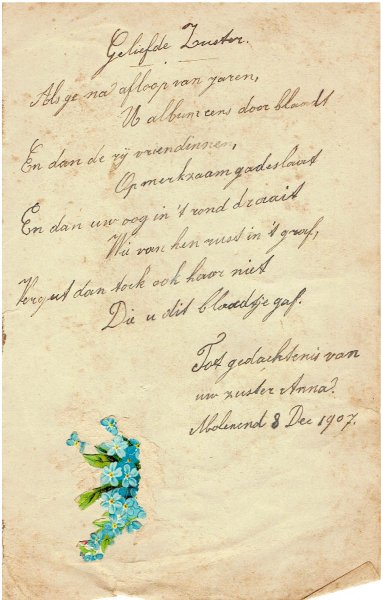 Geliefde Zuster.
Als ge na afloop van jaren,
U album eens door bladt
En dan de rij vriendinnen,
Opmerkzaam gadeslaat
En dan uw oog in 't rond draait
Wie van hen rust in 't graf,
Verget dan toch ook haar niet
Die u dit blaadtje gaf.
Tot gedachtenis van
uw zuster Anna.
Molenend 8 Dec 1907.